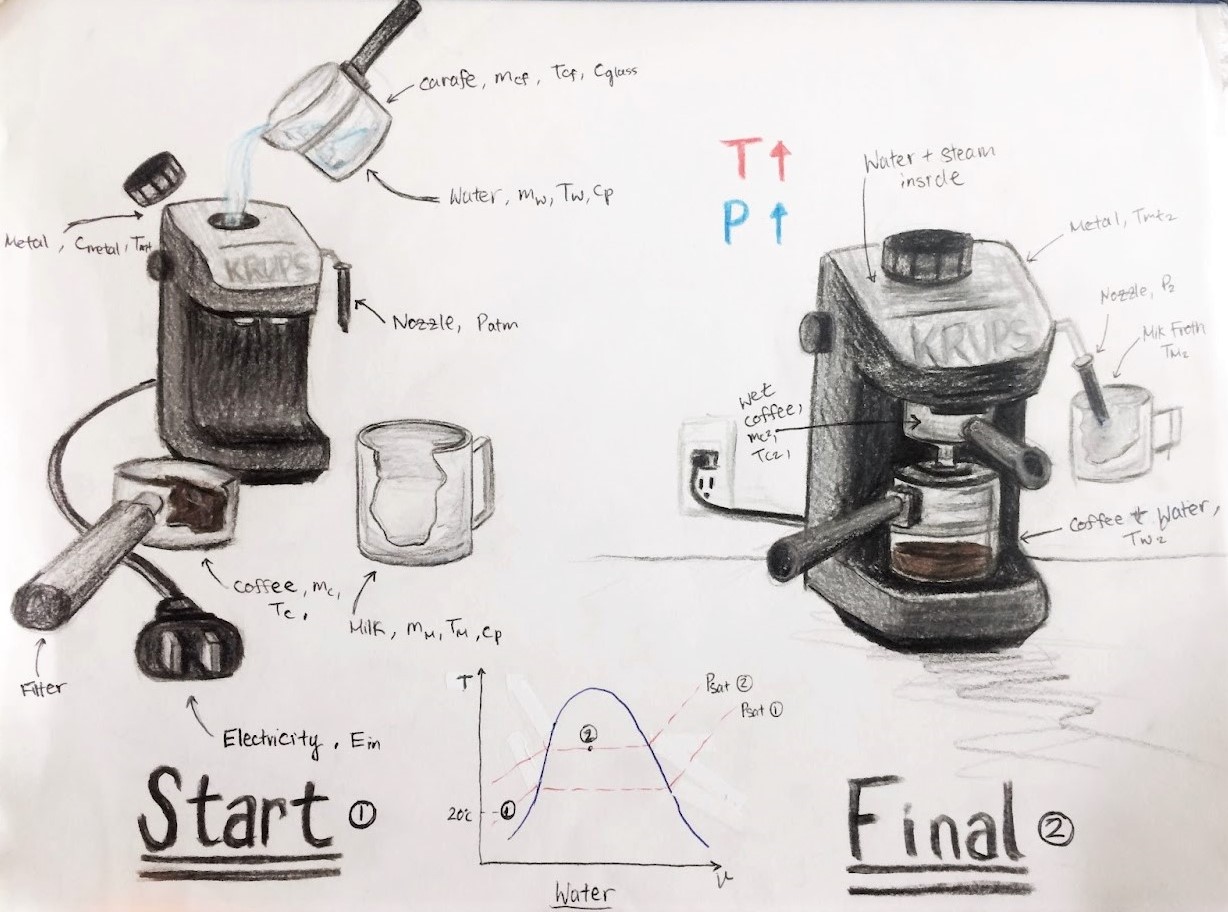 carafe, mcf, Tcf, Cglass
Water, mw, Tw, Cp
Metal, Cmetal, Tmt
KRUPS
Nozzle, Patm
Coffee, mc,
Tc,
Milk, mM, TM, cp
Filter
Electricity, Ein
Start ①
T↑
P↑
Water + steam
inside
Metal, Tmt2
Nozzle, P2
Milk Froth
TM2
KRUPS
Wet
coffee,
mc2,
Tc2,
Coffee + Water,
Tw2
T
Psat ②
Psat ①
②
①
20°c
Water
Final ②